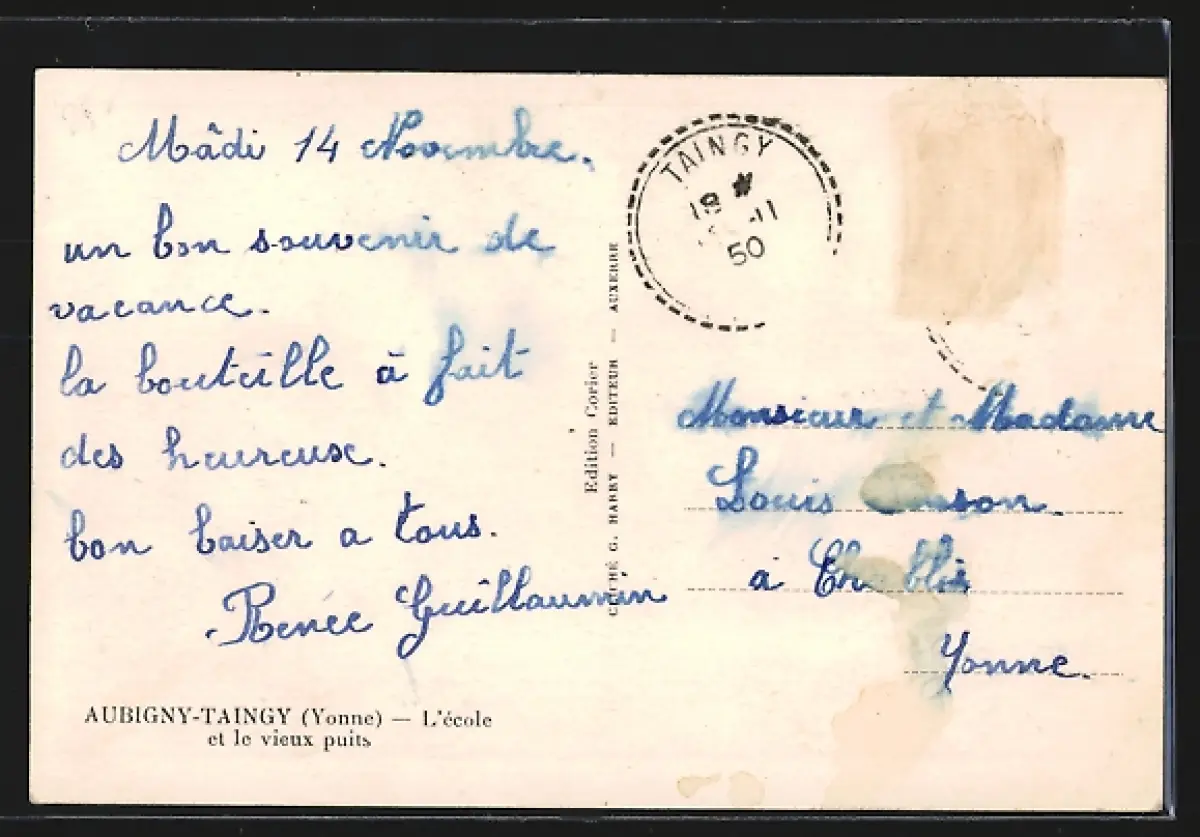 Mâdi 14 Novembre.
un bon souvenir de
vacance.
la bouteille à fait
des heureuse.
bon baiser a tous.
Renée Guillaumin
AUBIGNY-TAINGY (Yonne) — L'école
et le vieux puits
Edition Corier
CLICHÉ G. HARRY — EDITEUR — AUXERRE
TAINGY
18
-11
50
Monsieur et Madame
Louis
à Chablis
Yonne.